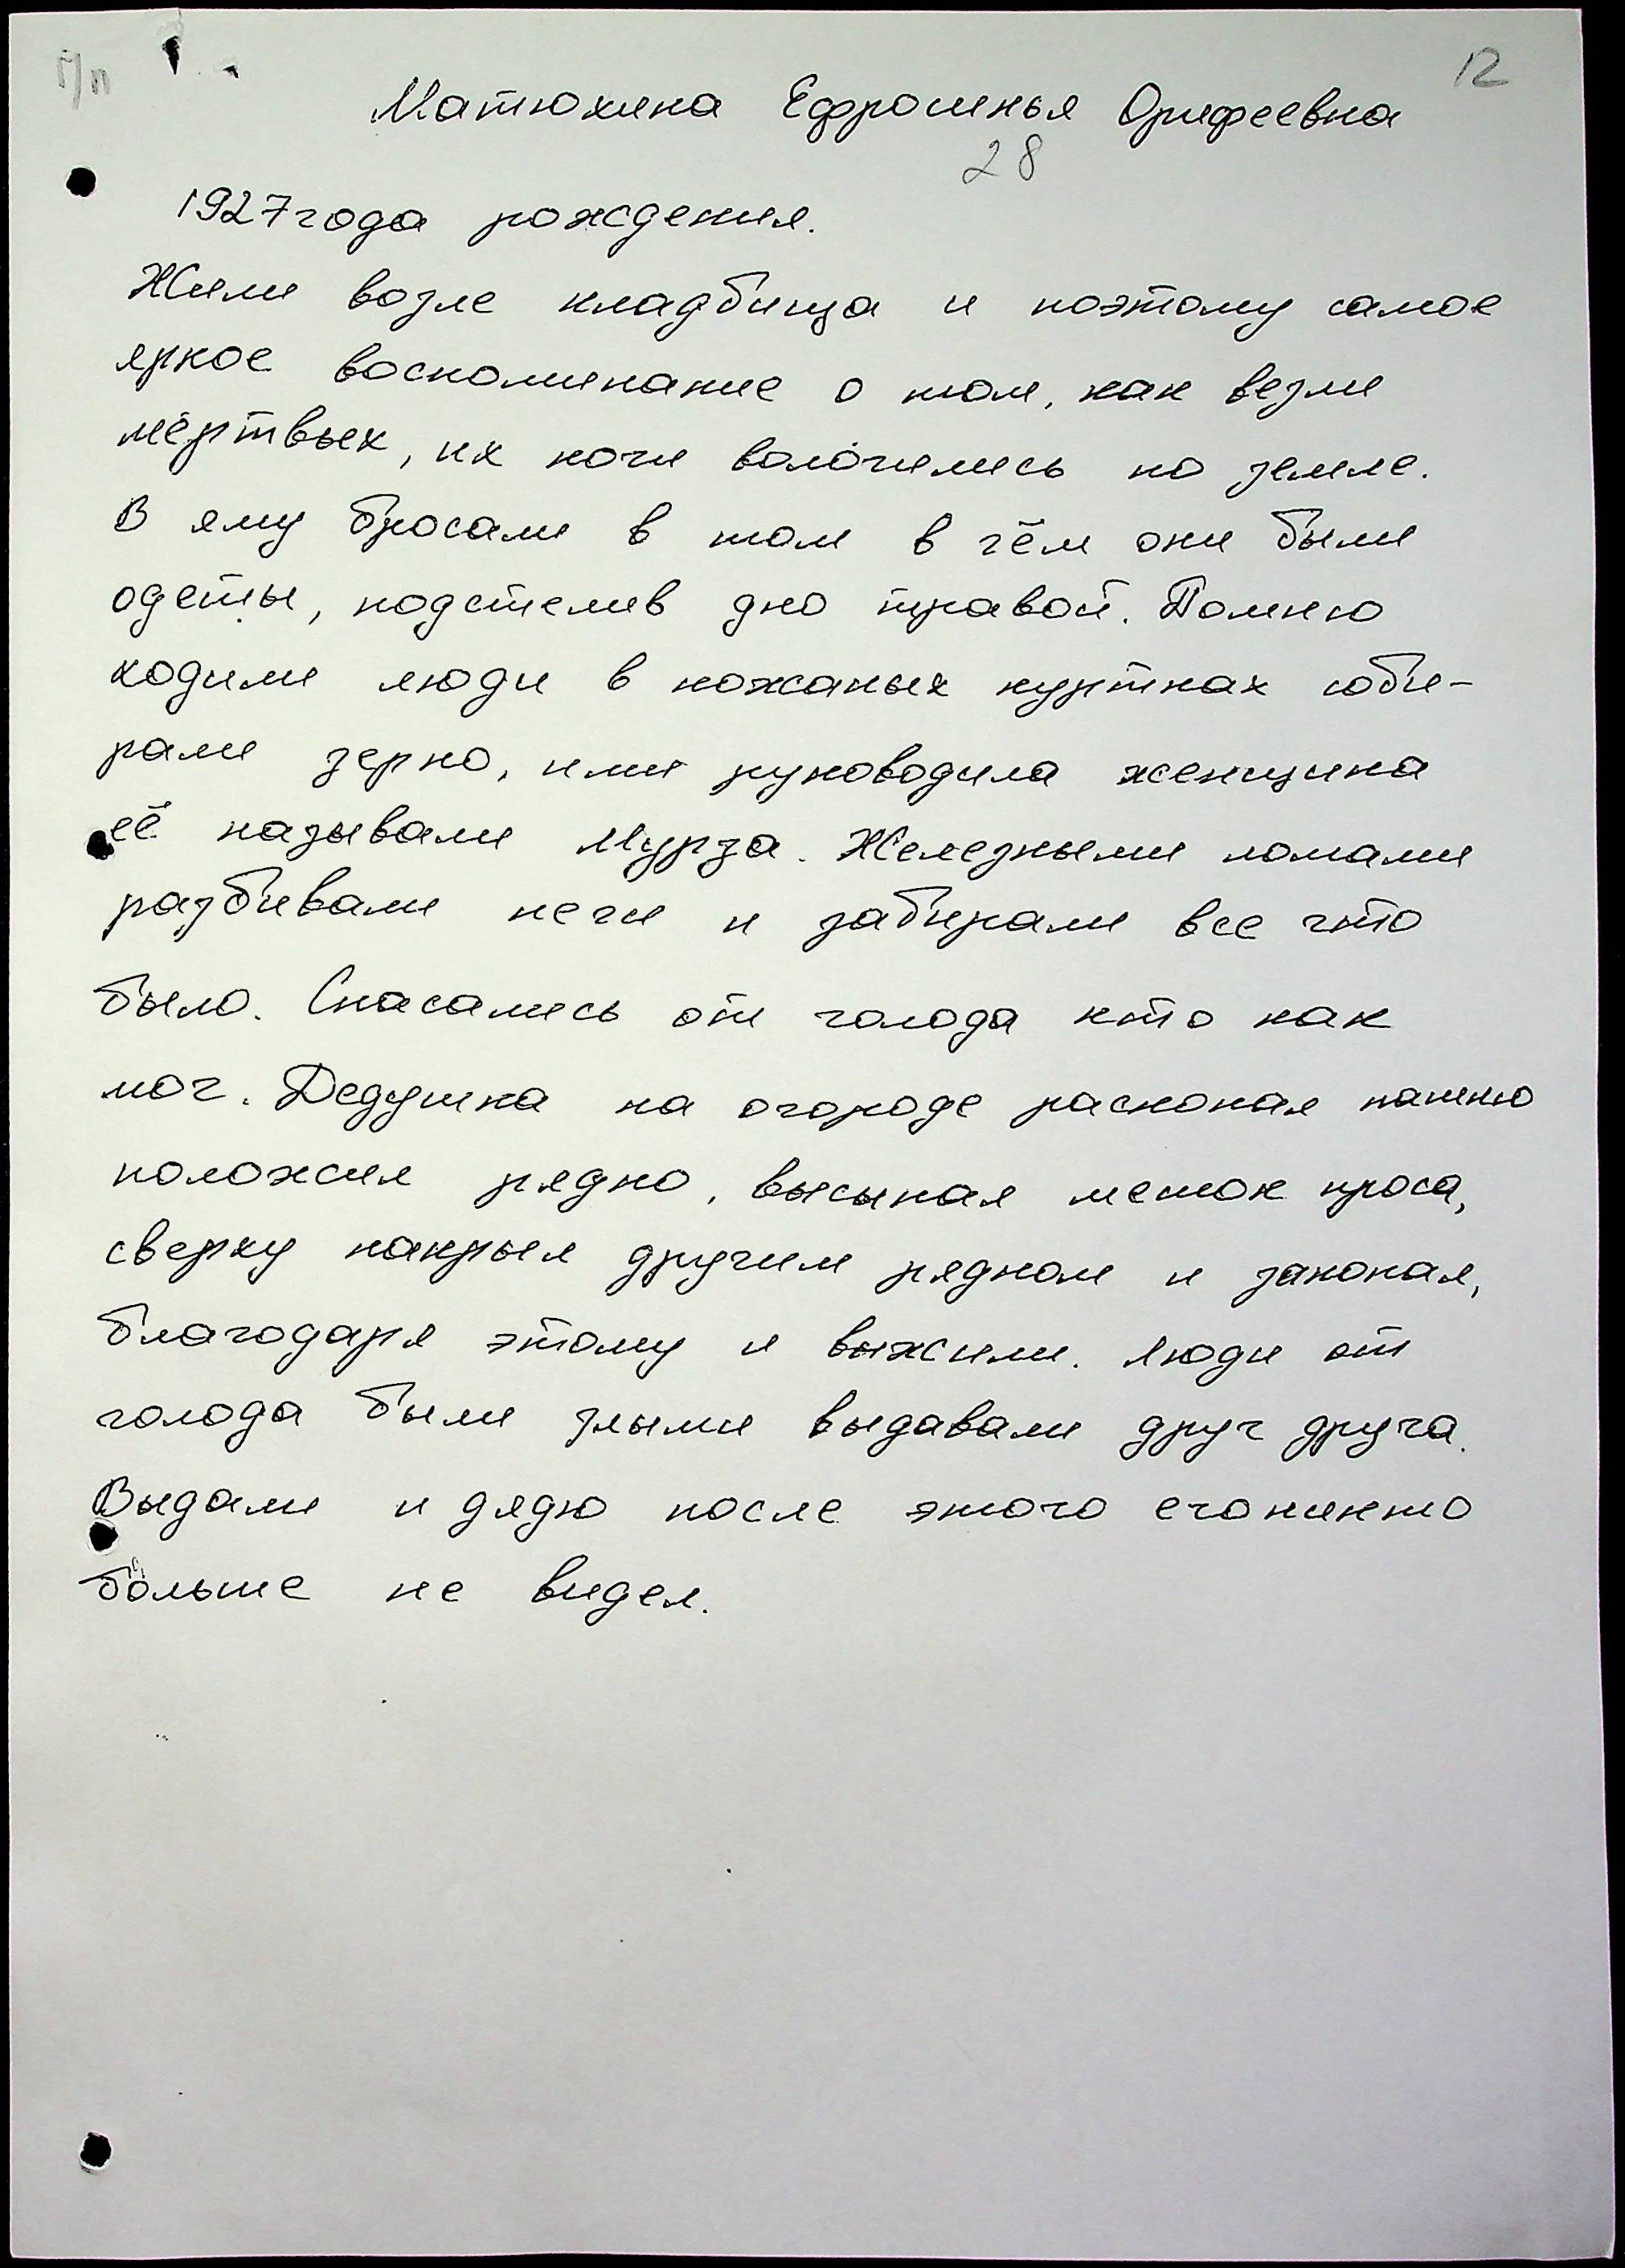 г/п
12
Матюхина Ефросинья Орифеевна
28
1927 года рождения.
Жили возле кладбища и поэтому самое
яркое воспоминание о том, как везли
мёртвых, их ноги волочились по земле.
В яму бросали в том в чём они были
одеты, подстелив дно травой. Помню
ходили люди в кожаных куртках соби-
рали зерно, ими руководила женщина
её называли Мурза. Железными ломами
разбивали печи и забирали все что
было. Спасались от голода кто как
мог. Дедушка на огороде раскопал пашню
положил рядно, высыпал мешок проса,
сверху накрыл другим рядном и закопал,
благодаря этому и выжили. Люди от
голода были злыми выдавали друг друга.
Выдали и дядю после этого его никто
больше не видел.